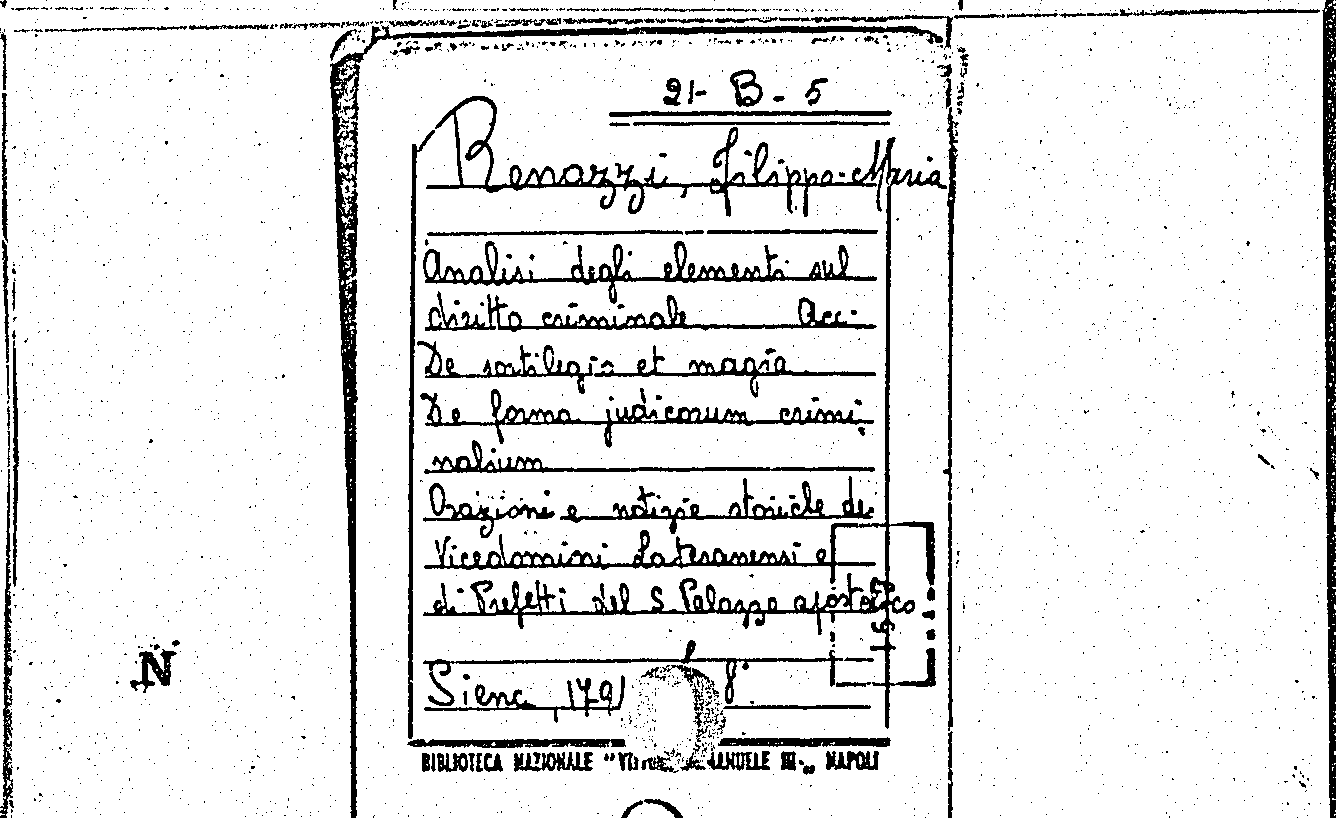 21- B - 5
Renazzi, Filippo-Maria
Analisi degli elementi sul
diritto criminale Acc.
De sortilegio et magia
De forma judicorum crimi
nalium
Orazioni e notizie storiche de
Vicedomini Lateranensi e
di Prefetti del S Palazzo apostolico
Siena, 1791 8°
BIBLIOTECA NAZIONALE "VITT MANUELE III„ NAPOLI
N